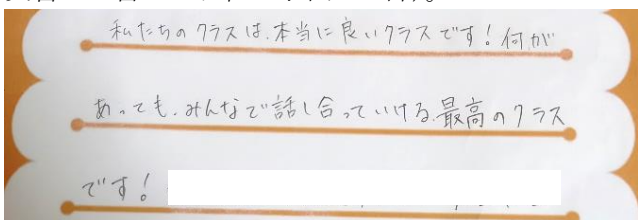 私たちのクラスは、本当に良いクラスです！何が
あっても、みんなで話し合っていける、最高のクラス
です！